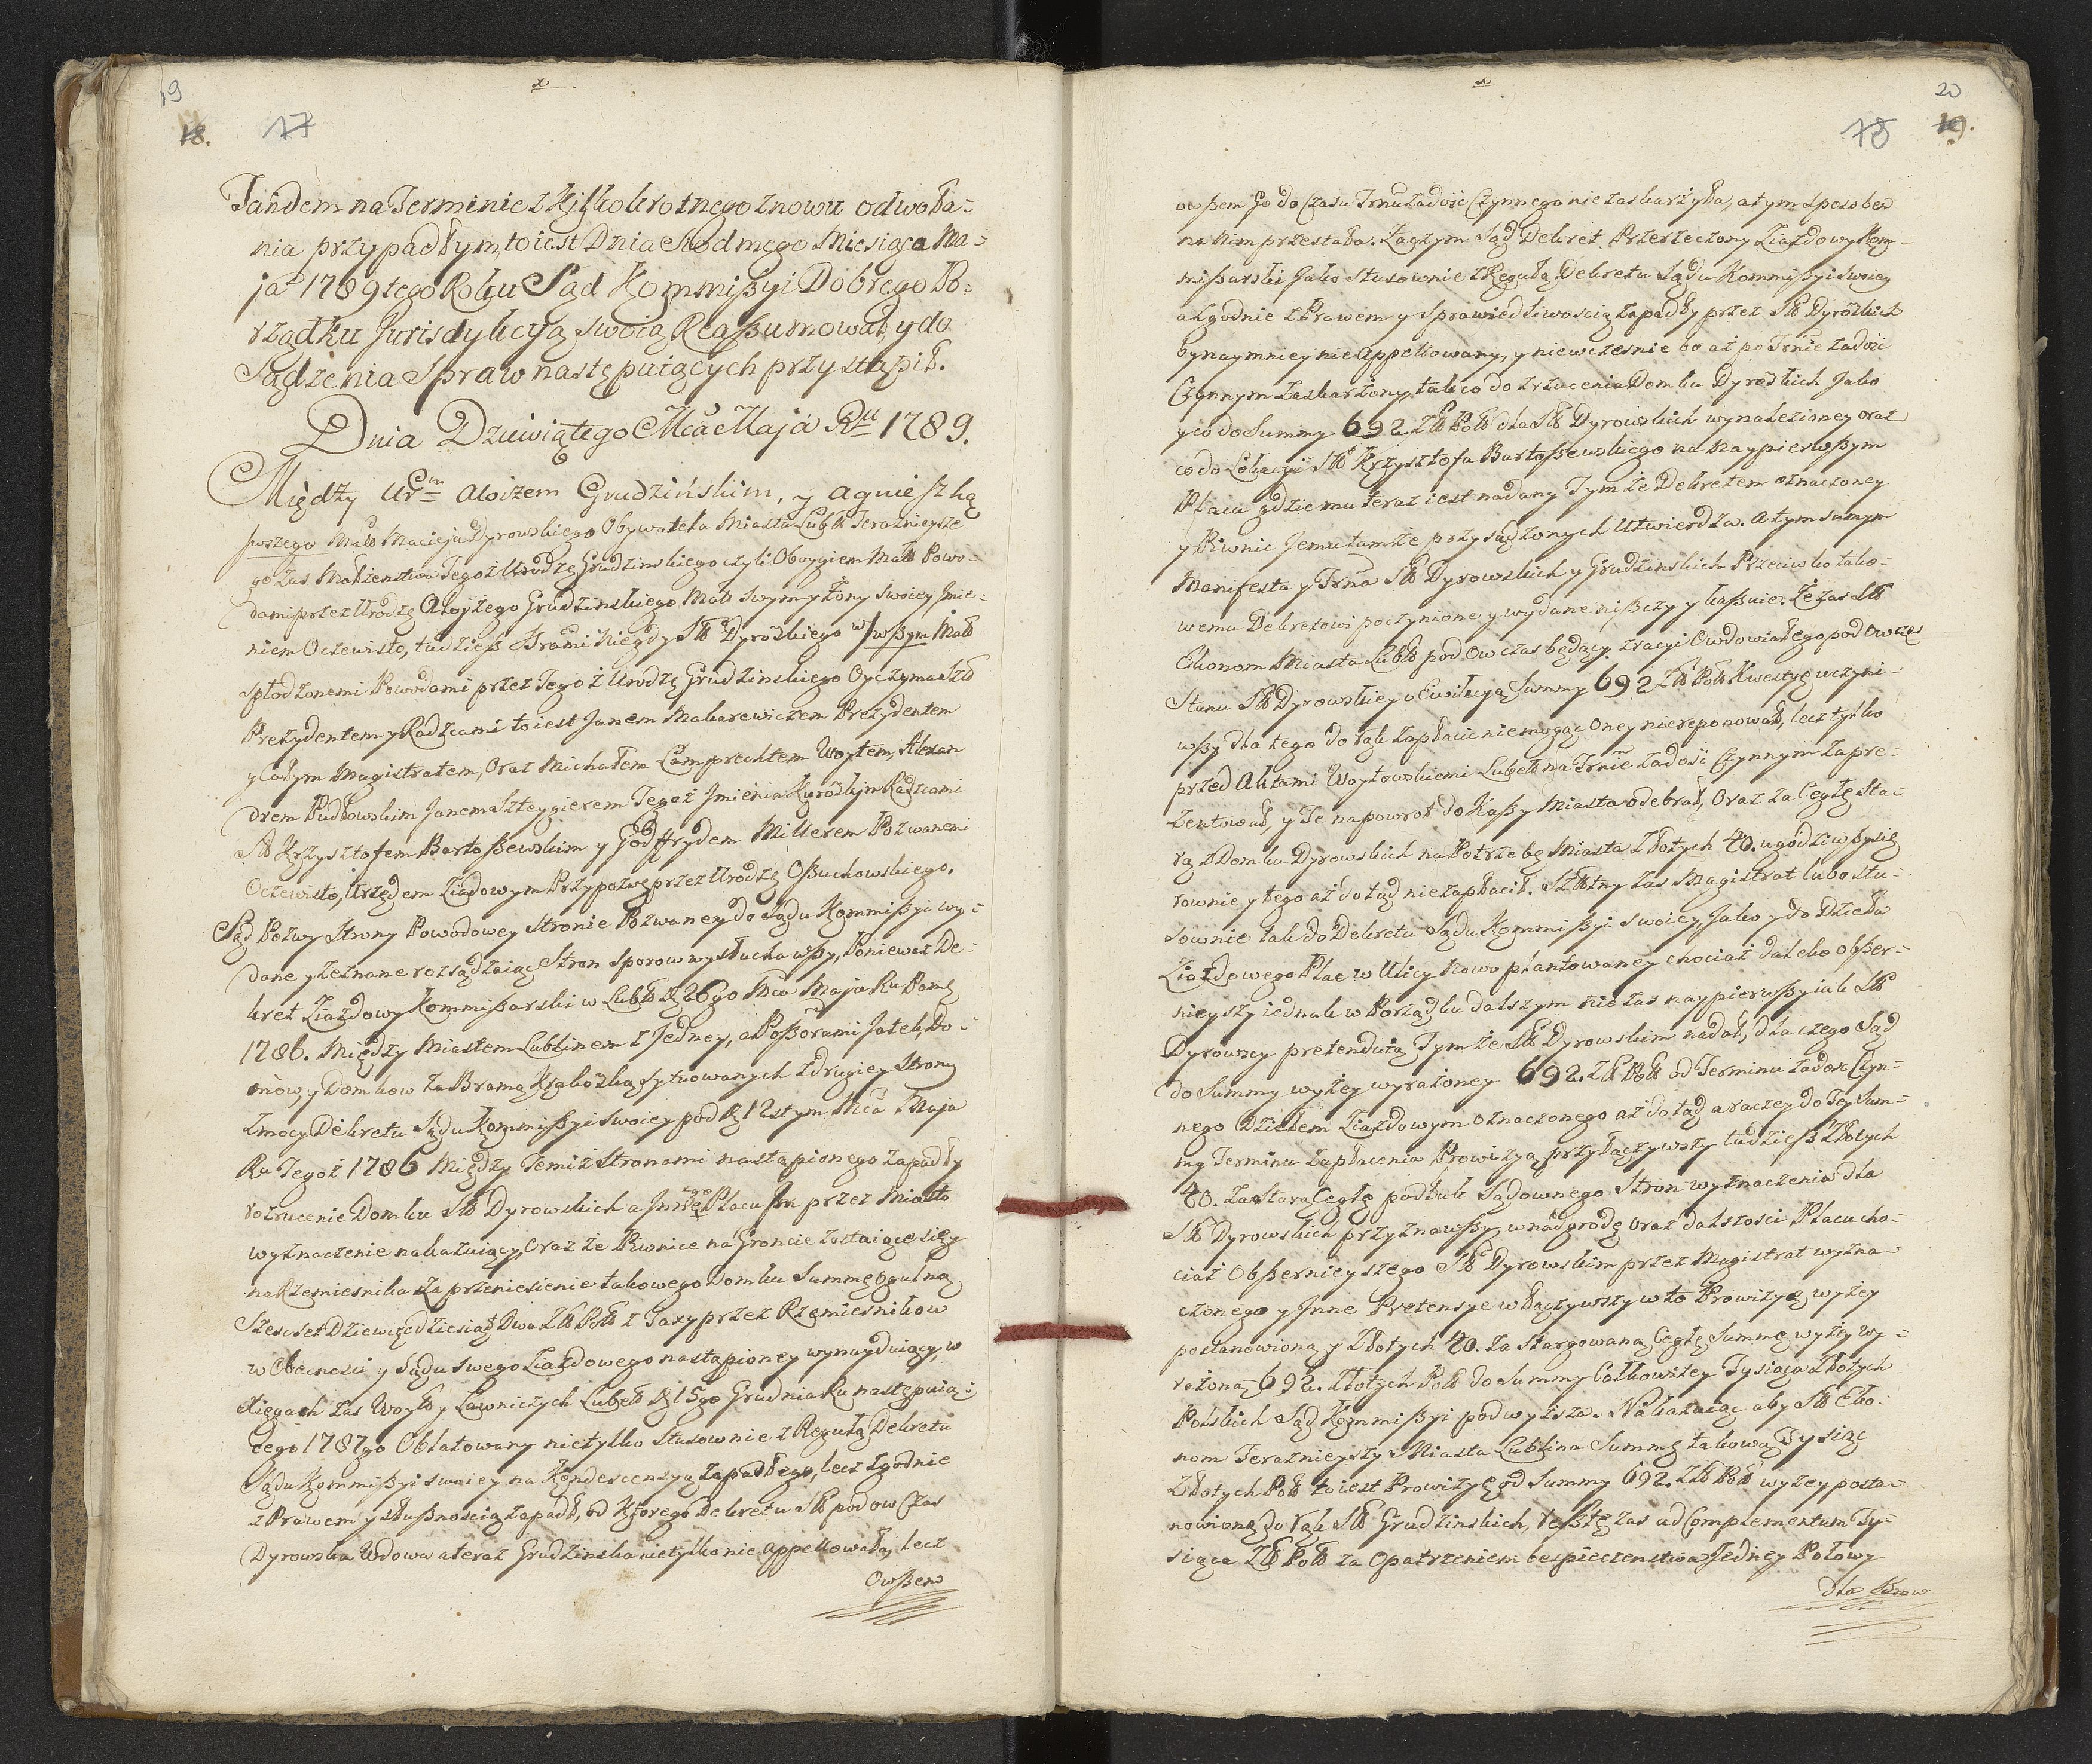 19
18. 17
Tandem na Terminie z Kilkokrotnego znowu odwoła-
nia przypadłym, to iest Dnia Siodmego Miesiąca Ma-
ja 1789tego Roku Sąd Kommißyi Dobrego Po-
rządku Jurisdykcyą swoią Reaßumował, y do
Sądzenia Spraw następuiących przystąpił.
Dnia Dziewiątego Mca Maja Rku 1789.
Między Urm Aloizem Grudzińskim, y Agnieszką
pwszego Małż Macieja Dyrowskiego Obywatela Miasta Lubl Teraznieysze-
go zas Małżenstwa Tegoż Urodzę Grudzinskiego czyli Oboygiem Małż Powo-
dami przez Urodzę Alojzego Grudzinskiego Małż swym y Żony swoiey Jmie-
niem Oczewisto, tudzieß Brami Niegdy Sł Dyrózkiego w pwßym Małż
spłodzonemi Powodami przez Tegoż Urodzę Grudzinskiego Oyczyma Szł
Prezydentem y Radzcami to iest Janem Makarewiczem Prezydentem
y Całym Magistratem, Oraz Michałem Lamprechtem Woytem, Alexan
drem Pudłowskim Janem Szteygierem Tegoż Jmienia Radzcami
Sł Krzysztofem Bartoßewskim y Godffrydem Millerem Pozwanemi
Oczewisto, Urzędem Ziazdowym Przypozwę przez Urodzę Oßuchowskiego.
Sąd Pozwy Strony Powodowey Stronie Pozwaney do Sądu Kommißyi wy-
dane y zeznane rozsądzaiąc Stron Sporow wysłuchawßy, Ponieważ De-
kret Ziazdowy Kommißarski w Lubl D 26go Mca Maja Ru Pańs
1786. Między Miastem Lublinem z Jedney, a Poßorami Jatek, Do-
mow, y Domkow za Bramą Krakoską sytuowanych z drugiey Strony
z mocy Dekretu Sądu Kommißyi swoiey pod D 12stym Mca Maja
Ru Tegoż 1786 Między Temiż Stronami nastąpionego zapadły
rozrucenie Domku Sł Dyrowskich a Jnnego Placu Jm przez Miasto
wyznaczenie nakazuiący, Oraz ze Piwnice na Groncie zostaiące się y
na Rzemiesnika za przeniesienie takowego Domku Summę ogulną
Szescset Dziewiędziesiąt Dwa Zł Pols z Taxy przez Rzemiesnikow
w Obecnosci y Sądu swego Ziazdowego nastąpioney wynayduiący, w
Xięgach zas Woyt y Ławniczych Lubel D 15go Grudnia Ru następuią-
cego 1787go Oblatowany nietylko Stosownie z Regułą Dekretu
Sądu Kommißyi swoiey na Kondescensyą zapadłego, lecz zgodnie
z Prawem y słußnoscią zapadł, od Ktorego Dekretu Sł podow Czas
Dyrowska Wdowa a teraz Grudzinska nietylko nie appellowała, lecz
Owßem
20
18 19.
owßem Go do Czasu Trnu zadość Czynnego nie zaskarżyła, a tym sposobem
na nim przestała. Zaczym Sąd Dekret Przerzeczony Ziazdowy Kom-
mißarski Jako stosownie z Regułą Dekretu Sądu Kommißyi swoiey
a zgodnie z Prawem y Sprawiedliwoscią zapadły przez Sł Dyrózkich
bynaymniey nie appellowany, y niewczesnie bo aż po Trnie zadość
Czynnym zaskarżony, tak co do zrzucenia Domku Dyrózkich Jako
y co do Summy 692. Zł Pols dla Sł Dyrowskich wynalezioney oraz
co do Lokacyi Sło Krzysztofa Bartoßewskiego na Naypierwßym
Placu gdzie mu teraz iest nadany Tymże Dekretem oznaczoney
y Piwnic Jemu tamże przysądzonych Utwierdza. A tym samym
Manifesta y Trna Sł Dyrowskich y Grudzinskich Przeciwko tako-
wemu Dekretowi poczynione y wydane nißczy y kaßuie. Że zas Sł
Ekonom Miasta Lubl pod Owczas będący z racyi Owdowiałego pod Owczas
Stanu Sł Dyrowskiey o Ewikcyą Summy 692 Zł Pols Kwestyę uczyni-
wßy dla tego do rąk zapłacic niemogąc Oney niereponował, lecz tylko
przed Aktami Woytowskiemi Lubel na Trnie zadość Czynnym zapre-
zentował, y Te napowrot do Kaßy Miasta odebrał, Oraz za Cegłę Sta-
rą z Domku Dyrowskich na Potrzebę Miasta Złotych 40. ugodziwßysię
rownie y tego aż dotąd niezapłacił. Szltny zas Magistrat lubo stu-
sownie tak do Dekretu Sądu Kommißyi swoiey, Jako y do Dzieła
Ziazdowego Plac w Ulicy Nowo plantowaney chociaż daleko obßer-
nieyszy iednak w Porządku dalszym nie zas naypierwßyiak Sł
Dyrowscy pretenduią Tymże Sł Dyrowskim nadał, dla czego Sąd
do Summy wyżey wyrażoney 692. Zł Pols od Terminu zadość Czyn-
nego Dziełem Ziazdowym oznaczonego aż dotąd a raczey do Tey Sum-
my Terminu zapłacenia Prowizyą przyłączywszy tudzieß Złotych
40. za Starą Cegłę podług Sądownego Stron wyznaczenia dla
Sł Dyrowskich przyznawßy, w nadgrodę oraz dalszosci Placu cho-
ciaż Obßernieyszego Sł Dyrowskim przez Magistrat wyzna-
czonego y Jnne Pretensye włączywszy w to Prowizyą wyżey
postanowioną y Złotych 40. za stargowaną Cegłę Summę wyżey wy-
rażoną 692. Złotych Pols do Summy Całkowitey Tysiąca Złotych
Polskich Sąd Kommißyi podwyższa. Nakazuiąc aby Sł Eko-
nom Teraznieyszy Miasta Lublina Summę takową Tysiąc
Złotych Pols to iest Prowizyę od Summy 692. Zł Pols wyżey posta-
nowioną do rąk Sł Grudzinskich, resztę zas ad Complementum Ty-
siąca Zł Pols za Opatrzeniem bespieczenstwa Jedney Połowy
dla Brow